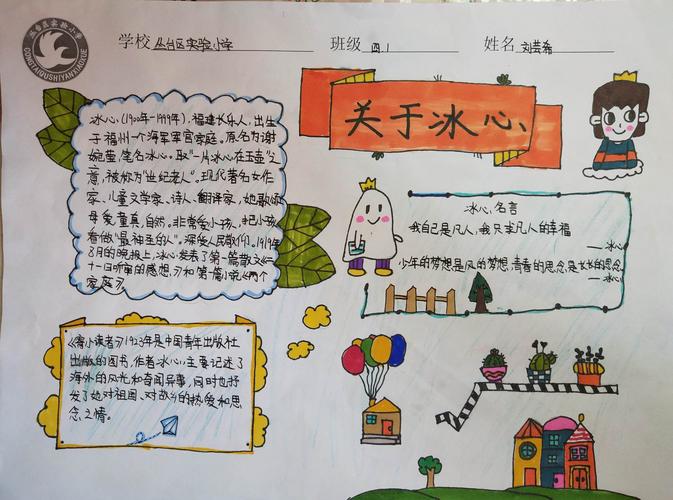 CONGTAIQUSHIYANXIAOXUE
学校 丛台区实验小学 班级 四.1 姓名 刘芸希
关于冰心
冰心,(1900年-1999年),福建长乐人,出生
于福州一个海军军官家庭。原名为谢
婉莹,笔名冰心。取"一片冰心在玉壶"之
意,被称为"世纪老人"。现代著名女作
家、儿童文学家、诗人、翻译家,她歌颂
母爱、童真,自然。非常爱小孩,把小孩
看做"最神圣的人"。深受人民敬仰。1919年
8月的晚报上,冰心发表了第一篇散文《二
十一日听审的感想》和第一篇小说《两个
家庭》
冰心名言
我自己是凡人,我只求凡人的幸福
——冰心
少年的梦想是风的梦想,青春的思念,是长长的思念
——冰心
《寄小读者》1923年是中国青年出版社
出版的图书,作者冰心,主要记述了
海外的风光和奇闻异事,同时也抒
发了她对祖国、对故乡的热爱和思
念之情。